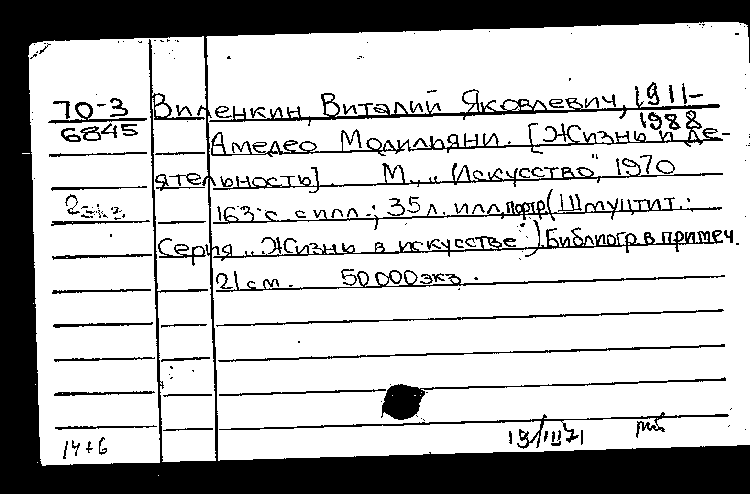 70-3 Виленкин, Виталий Яковлевич, 1911-
6845 1988
Амедео Модильяни. [Жизнь и де-
ятельность]. М., "Искусство", 1970
2экз. 163 с. с илл.; 35 л. илл, портр (Шмуцтит.:
Серия "Жизнь в искусстве") Библиогр в примеч.
21 см. 50000экз.
14+6 19/III 71